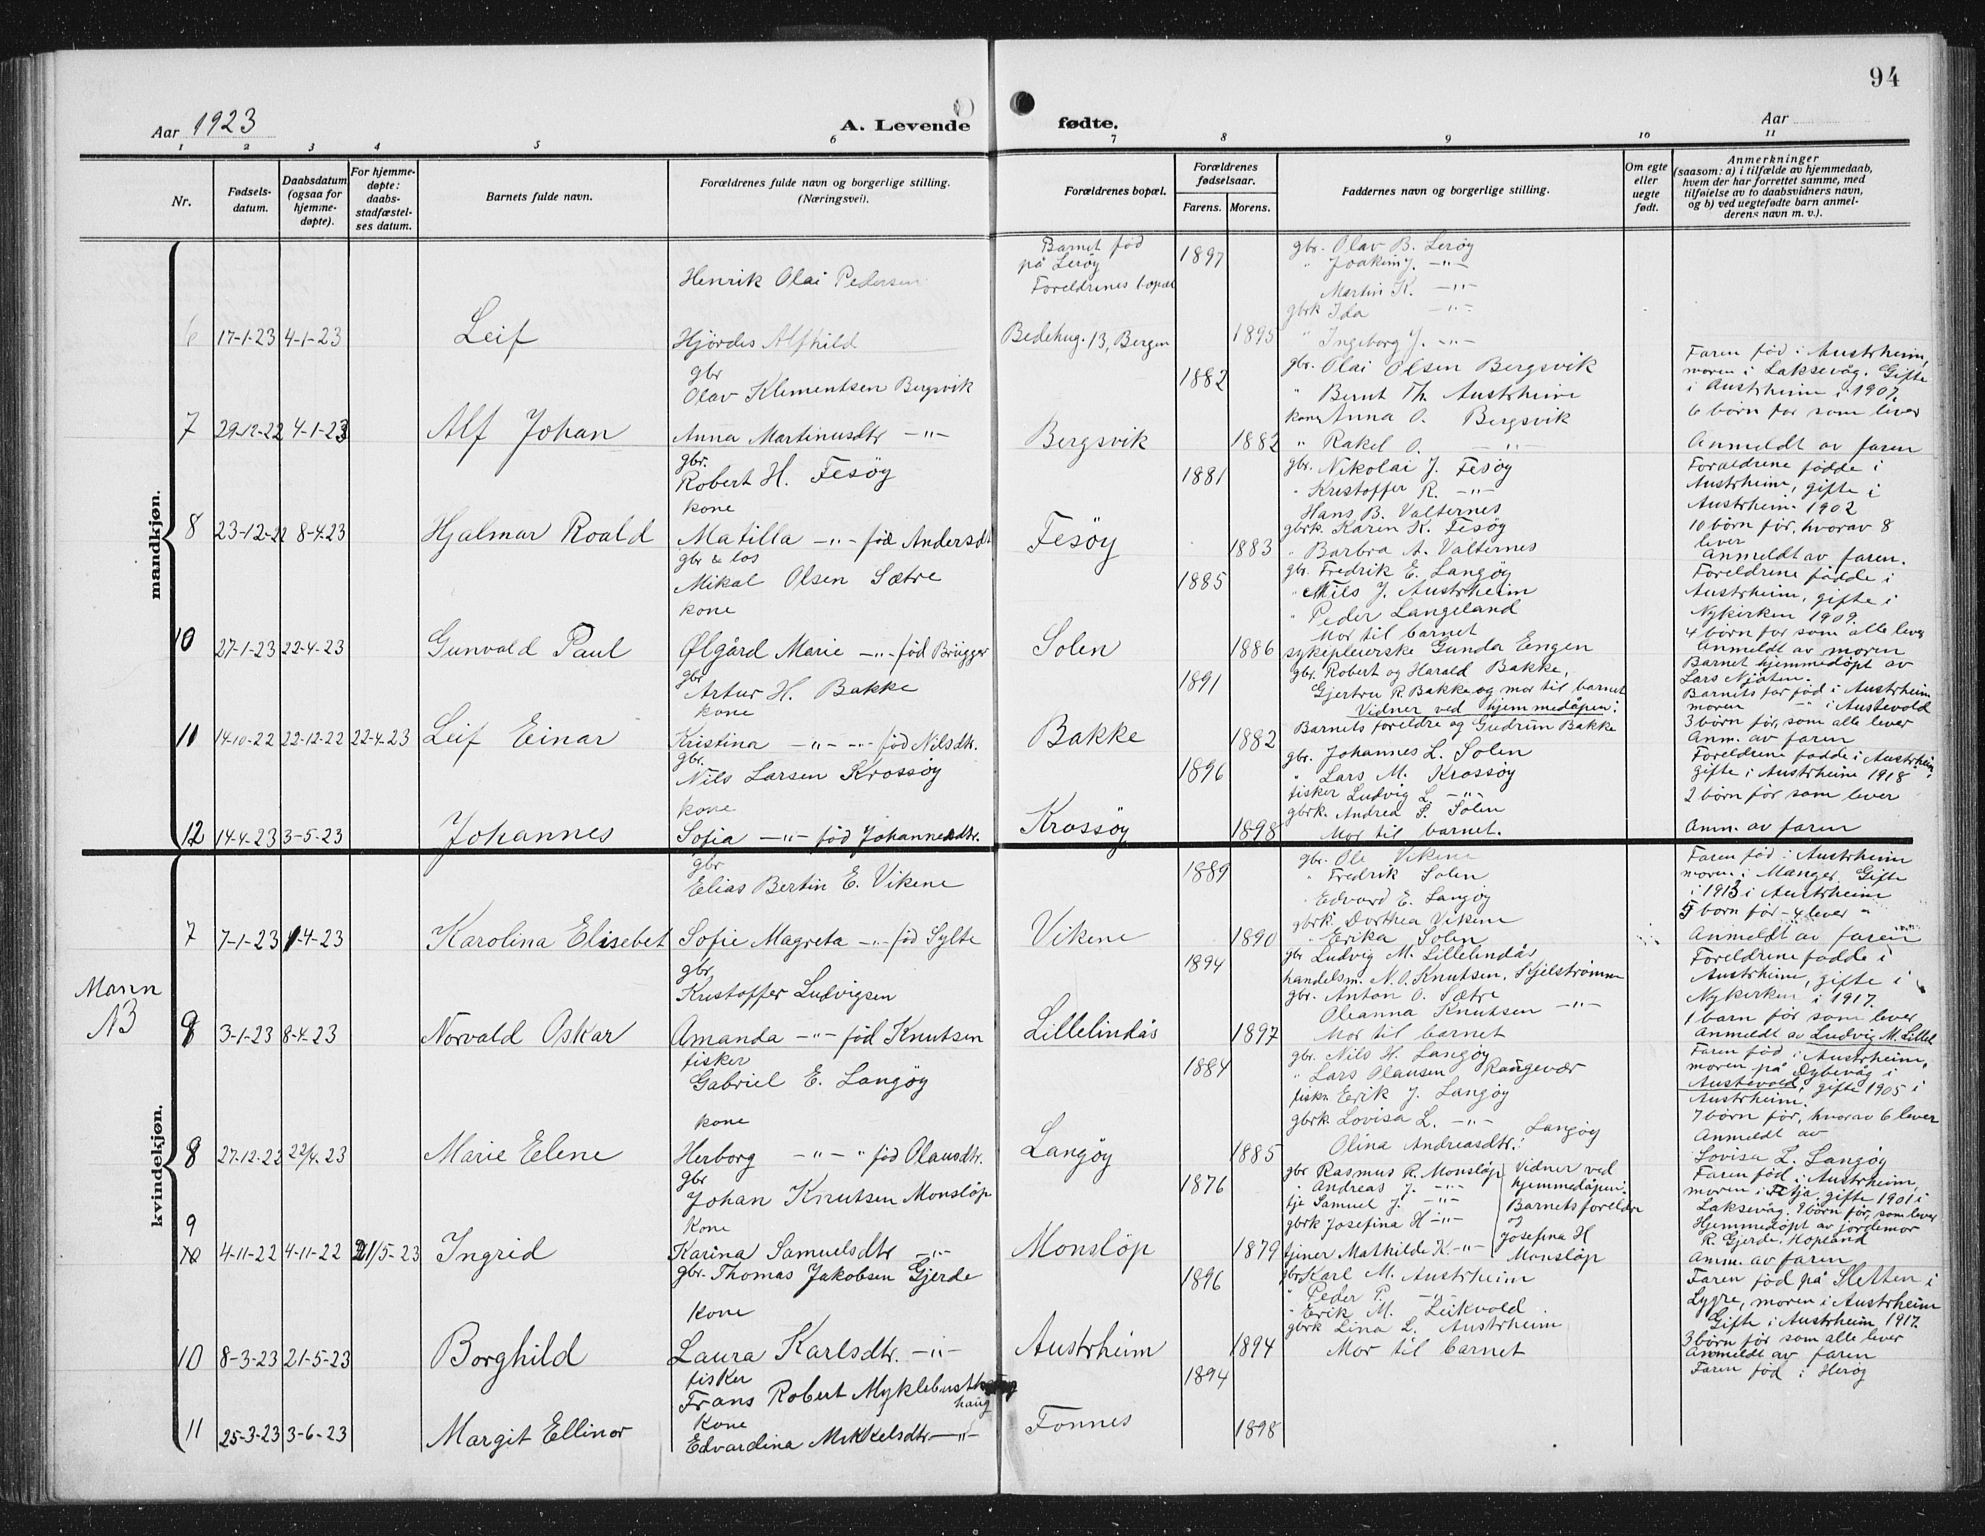 94
Aar 1923
A. Levende
fødte.
Aar
1 2 3 4 5 6 7 8 9 10 11
Nr.
Fødsels-
datum.
Daabsdatum
(ogsaa for
hjemme-
døpte).
For hjemme-
døpte:
daabs-
stadfæstel-
ses datum.
Barnets fulde navn.
Forældrenes fulde navn og borgerlige stilling.
(Næringsvei).
Forældrenes bopæl.
Forældrenes
fødselsaar.
Farens. Morens.
Faddernes navn og borgerlige stilling.
Om egte
eller
uegte
født.
Anmerkninger
(saasom: a) i tilfælde av hjemmedaab,
hvem der har forrettet samme, med
tilføielse av to daabsvidners navn,
og b) ved uegtefødte barn anmel-
derens navn m. v.).
mandkjøn.
6 17-1-23 4-1-23 Leif
Henrik Olai Pedersen
Hjördis Alfhild
Barnet fød
på Lerøy
Foreldrenes bopæl
Bedehug. 13, Bergen
1897
1895
gbr. Olav B. Lerøy
" Joakim J. -"-
Martin K. -"-
gbrk Ida -"-
" Ingeborg J. -"-
7 29-12-22 4-1-23 Alf Johan
gbr
Olav Klementsen Bergsvik
Anna Martinusdtr -"-
Bergsvik
1882
1882
gbr. Olai Olsen Bergsvik
" Bernt Th. Austrheim
kone Anna O. Bergsvik
" Rakel O. -"-
Faren fød i Austrheim,
moren i Laksevåg. Gifte
i Austrheim i 1907.
6 börn før som lever
Anmeldt av faren
8 23-12-22 8-4-23 Hjalmar Roald
gbr.
Robert H. Fesøy
kone
Matilla -"- fød Andersdt
Fesøy
1881
1883
gbr. Nikolai J. Fesøy
" Kristoffer R. -"-
Hans B. Valternes
gbrk. Karen K. Fesøy
" Barbra A. Valternes
Foreldrene födde i
Austrheim, gifte i
Austrheim 1902
10 börn før, hvorav 8
lever
Anmeldt av faren.
10 27-1-23 22-4-23 Gunvald Paul
gbr & los
Mikal Olsen Sætre
kone
Ølgård Marie -"- fød Brügger
Solen
1885
1886
gbr. Fredrik E. Langøy
" Nils J. Austrheim
" Peder Langeland
Mor til barnet
sykepleierske Gunda Engen
Foreldrene födde i
Austrheim, gifte i
Nykirken 1909.
4 börn før som alle lever
Anmeldt av moren
11 14-10-22 22-12-22 22-4-23 Leif Einar
gbr
Artur H. Bakke
kone
Kristina -"- -"- fød Nilsdtr.
Bakke
1891
1882
gbr. Robert og Harald Bakke,
Gjertru R. Bakke og mor til barnet
Vidner ved hjemmedåpen:
Barnets foreldre og Gudrun Bakke
Barnet hjemmedøpt av
Lars Njåten.
Barnets far fød i Austrheim
moren -"- i Austevold
3 börn før, som alle lever
Anm. av faren
12 14-4-23 3-5-23 Johannes
gbr.
Nils Larsen Krossøy
kone
Sofia -"- fød Johannesdtr.
Krossøy
1896
1898
gbr. Johannes L. Solen
" Lars M. Krossøy
fisker Ludvig L. -"-
gbrk. Andrea S. Solen
Mor til barnet.
Foreldrene fødde i Austrheim,
gifte i Austrheim 1918
2 börn før som lever
Anm. av faren
kvindekjøn.
7 7-1-23 1-4-23 Karolina Elisebet
gbr
Elias Bertin E. Vikene
Sofie Magreta -"- fød Sylte
Vikene
1889
1890
gbr. Ole Vikene
" Fredrik Solen
Edvard E. Langøy
gbrk. Dorthea Vikene
" Erika Solen
Faren fød i Austrheim
moren i Manger Gifte
i 1913 i Austrheim
5 børn før - 4 lever
Anmeldt av faren
Mann
NB
3-1-23 8-4-23 Norvald Oskar
gbr
Kristoffer Ludvigsen
Amanda -"- fød Knutsen
Lillelindås
1894
1897
gbr Ludvig M. Lillelindås
handelsm. N. O. Knutsen, Skjelstrømmen
gbr. Anton O. Sætre
Oleanna Knutsen -"-
Mor til barnet
Foreldrene fødde i
Austrheim, gifte i
Nykirken i 1917.
1 barn før som lever
Anmeldt av Ludvig M. Lillel
8 27-12-22 22/4-23 Marie Elene
fisker
Gabriel E. Langøy
kone
Herborg -"- -"- fød Olausdtr.
Langøy
1884
1885
gbr. Nils H. Langøy
" Lars Olausen Raugevær
fisker Eerik J. Langøy
gbrk Lovisa L. -"-
Olina Andreasdtr: Langøy
Faren fød i Austrheim,
moren på Dybevåg i
Austevold, gifte 1905 i
Austrheim.
7 börn før, hvorav 6 lever
Anmeldt av
Lovisa L. Langøy
9
4-11-22 4-11-22 21/5-23 Ingrid
gbr
Johan Knutsen Monsløp
kone
Karina Samuelsdtr -"-
Monsløp
1876
1879
gbr Rasmus R. Monsløp
" Andreas J. -"-
tje Samuel J. -"-
gbrk Josefina H -"-
tjener Mathilde K. -"-
Vidner ved
hjemmedåpen:
Barnets foreldre
og
Josefina H
Monsløp
Faren fød i Austrheim,
moren i Fitja, gifte 1901 i
Laksevåg. 9 börn før, som lever
Hjemmedøpt av jordemor
R. Gjerde, Hopland
Anm. av faren
10 8-3-23 21-5-23 Borghild
gbr. Thomas Jakobsen Gjerde
kone
Laura Karlsdtr. -"-
Austrheim
1896
1894
gbr Karl M. Austrheim
" Peder P. -"-
" Eerik M. Leikvold
gbrk Lina L. Austrheim
Mor til barnet
Faren fød på Sletten i
Lygre, moren i Austrheim
Gifte i Austrheim 1917.
3 börn før som alle lever
Anmeldt av faren
11 25-3-23 3-6-23 Margit Ellinor
fisker
Frans Robert Myklebust
haug
kone
Edvardina Mikkelsdtr -"-
Fonnes
1894
1898
Faren fød i Herøy